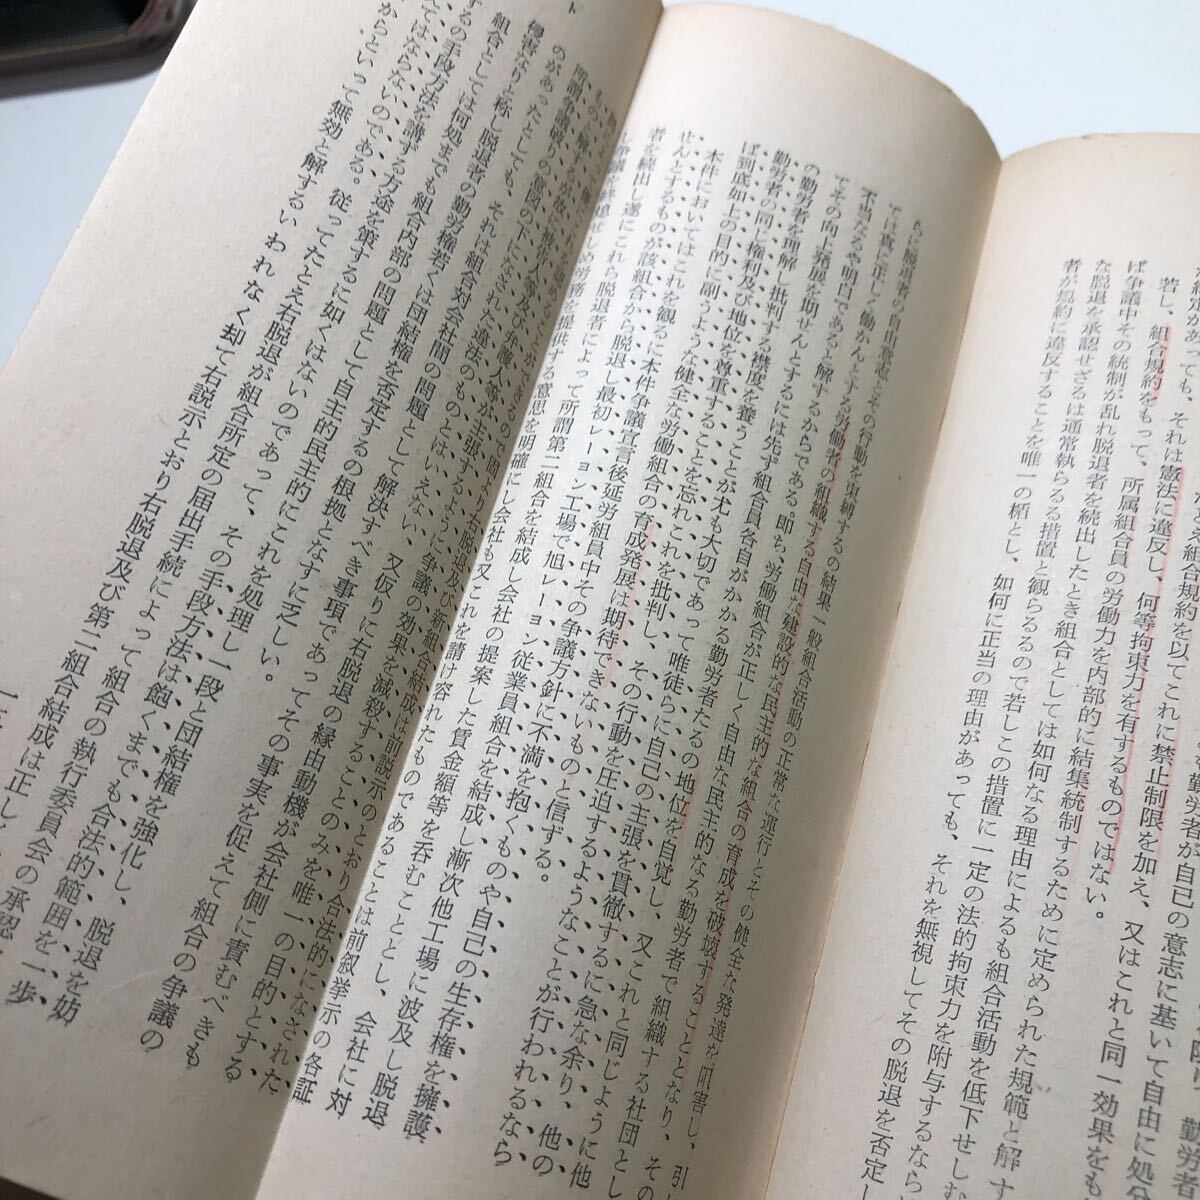 があっても、それは憲法に違反し、何等拘束力を有するものではない。
若し、組合規約をもって、所属組合員の労働力を内部的に結集統制するために定められた規範と解す
ば争議中その統制が乱れ脱退者を続出したとき組合としては如何なる理由によるも組合活動を低下せし
な脱退を承認せざるは通常執らるる措置と観らるるので若しこの措置に一定の法的拘束力を附与するなら
者が規約に違反することを唯一の楯とし、如何に正当の理由があっても、それを無視してその脱退を否定し
脱退者の自由意志とその行動を束縛するの結果一般組合活動の正常な運行とその健全な発達を阻害し、引
ては真に正しく働かんとする労働者の組織する自由な建設的な民主的な組合の育成を破壊することとなり、その
不当なるや明白であると解するからである。即ち、労働組合が正しく自由な民主的なる勤労者で組織する社団とし
てその向上発展を期せんとするには先ず組合員各自がかかる勤労者たるの地位を自覚し、又これと同じように他
の勤労者を理解し批判する襟度を養うことが尤も大切であって唯徒らに自己の主張を貫徹するに急な余り、他の
勤労者の同じ権利及び地位を尊重することを忘れこれを批判し、その行動を圧迫するようなことが行われるなら
ば到底如上の目的に副うような健全な労働組合の育成発展は期待できないものと信ずる。
本件においてはこれを観るに本件争議宣言後延労組員中その争議方針に不満を抱くものや自己の生存権を擁護
せんとするものが該組合から脱退し最初レーヨン工場で旭レーヨン従業員組合を結成し漸次他工場に波及し脱退
者を続出し遂にこれら脱退者によって所謂第二組合を結成し会社の提案した賃金額等を呑むこととし、会社に対
し争議を終熄せしめ労務を提供する意思を明確にし会社も又これを請け容れたものであることは前叙挙示の各証
ものと解するが故に被告人等及び弁護人等が主張するように争議の効果を減殺することのみを唯一の目的とする
所謂争議破りの意図の下になされた違法のものとはいえない、又仮りに右脱退の縁由動機が会社側に責むべきも
のがあったとしても、それは組合対会社間の問題として解決すべき事項であってその事実を促えて組合の争議の
侵害なりと称し脱退者の勤労権若くは団結権を否定するの根拠となすに乏しい。
組合としては何処までも組合内部の問題として自主的民主的にこれを処理し一段と団結権を強化し、脱退を妨
するの手段方法を講ずる方途を策するに如くはないのであって、その手段方法は飽くまでも合法的範囲を一歩
てはならないのである。従ってたとえ右脱退が組合所定の届出手続によって組合の執行委員会の承認
からといって無効と解するいわれなく却て右説示とおり右脱退及び第二組合結成は正し